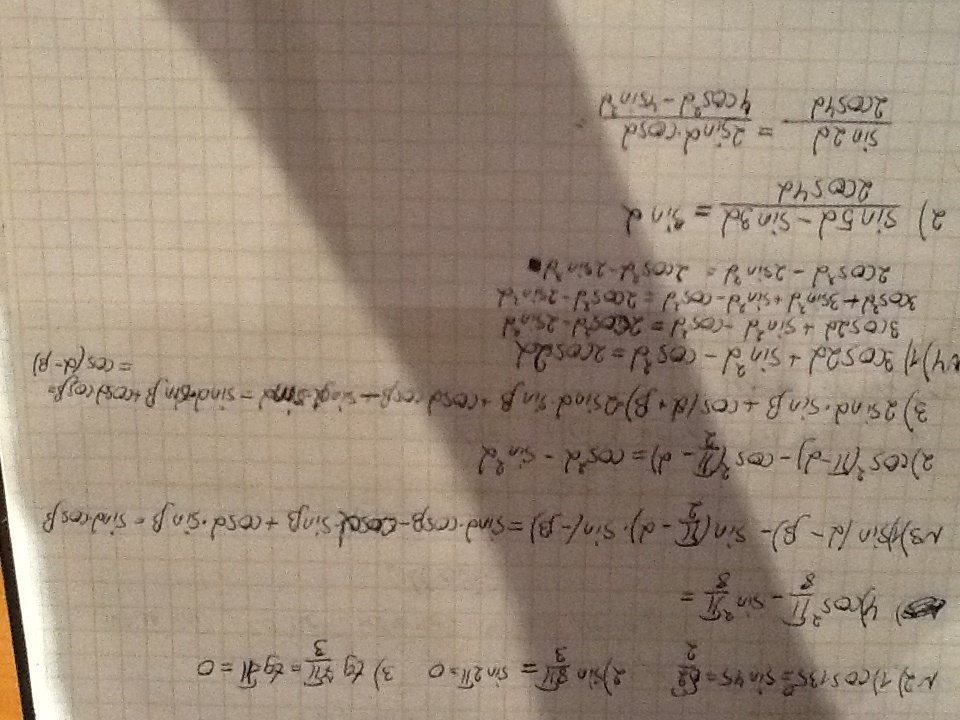 N2) 1) cos135° = sin45 = √2/2   2) sin 8π/3 = sin2π = 0   3) tg 7π/3 = tgπ = 0
4) cos² π/8 - sin² π/8 =
N3) 1) sin(α - β) - sin(π/2 - α)·sin(-β) = sinα·cosβ - cosα·sinβ + cosα·sinβ = sinα·cosβ
2) cos²(π-α) - cos²(π/2 - α) = cos²α - sin²α
3) 2sinα·sinβ + cos(α+β) = 2sinα·sinβ + cosα·cosβ - sinα·sinβ = sinα·sinβ + cosα·cosβ =
= cos(α-β)
N4) 1) 3cos2α + sin²α - cos²α = 2cos2α
3cos2α + sin²α - cos²α = 2cos²α - 2sin²α
3cos²α + 3sin²α + sin²α - cos²α = 2cos²α - 2sin²α
2cos²α - 2sin²α = 2cos²α - 2sin²α
2) (sin5α - sin3α)/(2cos4α) = sinα
(sin2α)/(2cos4α) = (2sinα·cosα)/(4cos²α - 4sin²α)